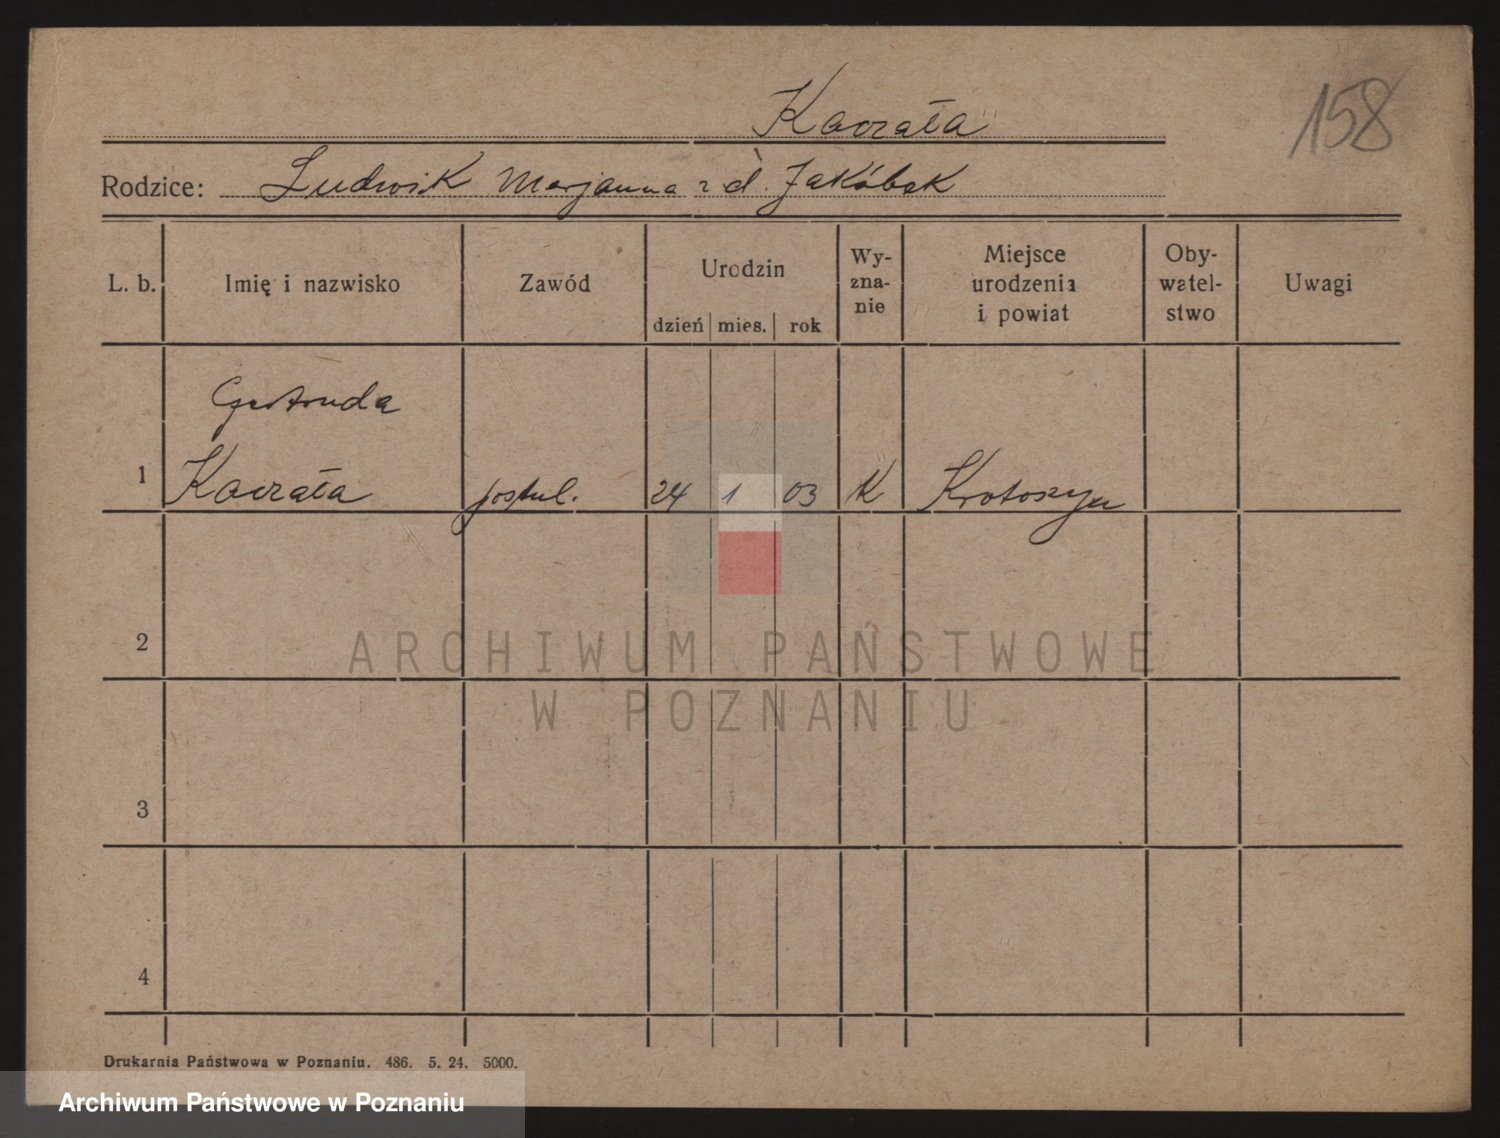 Kaczała
158
Rodzice: Ludwik Marjanna z d. Jakóbek
L. b. Imię i nazwisko Zawód Urodzin dzień mies. rok Wy-zna-nie Miejsce urodzenia i powiat Oby-watel-stwo Uwagi
Gertruda
1 Kaczała postul. 24 1 03 K Krotoszyn
2
ARCHIWUM PAŃSTWOWE
W POZNANIU
3
4
Drukarnia Państwowa w Poznaniu. 486. 5. 24. 5000.
Archiwum Państwowe w Poznaniu